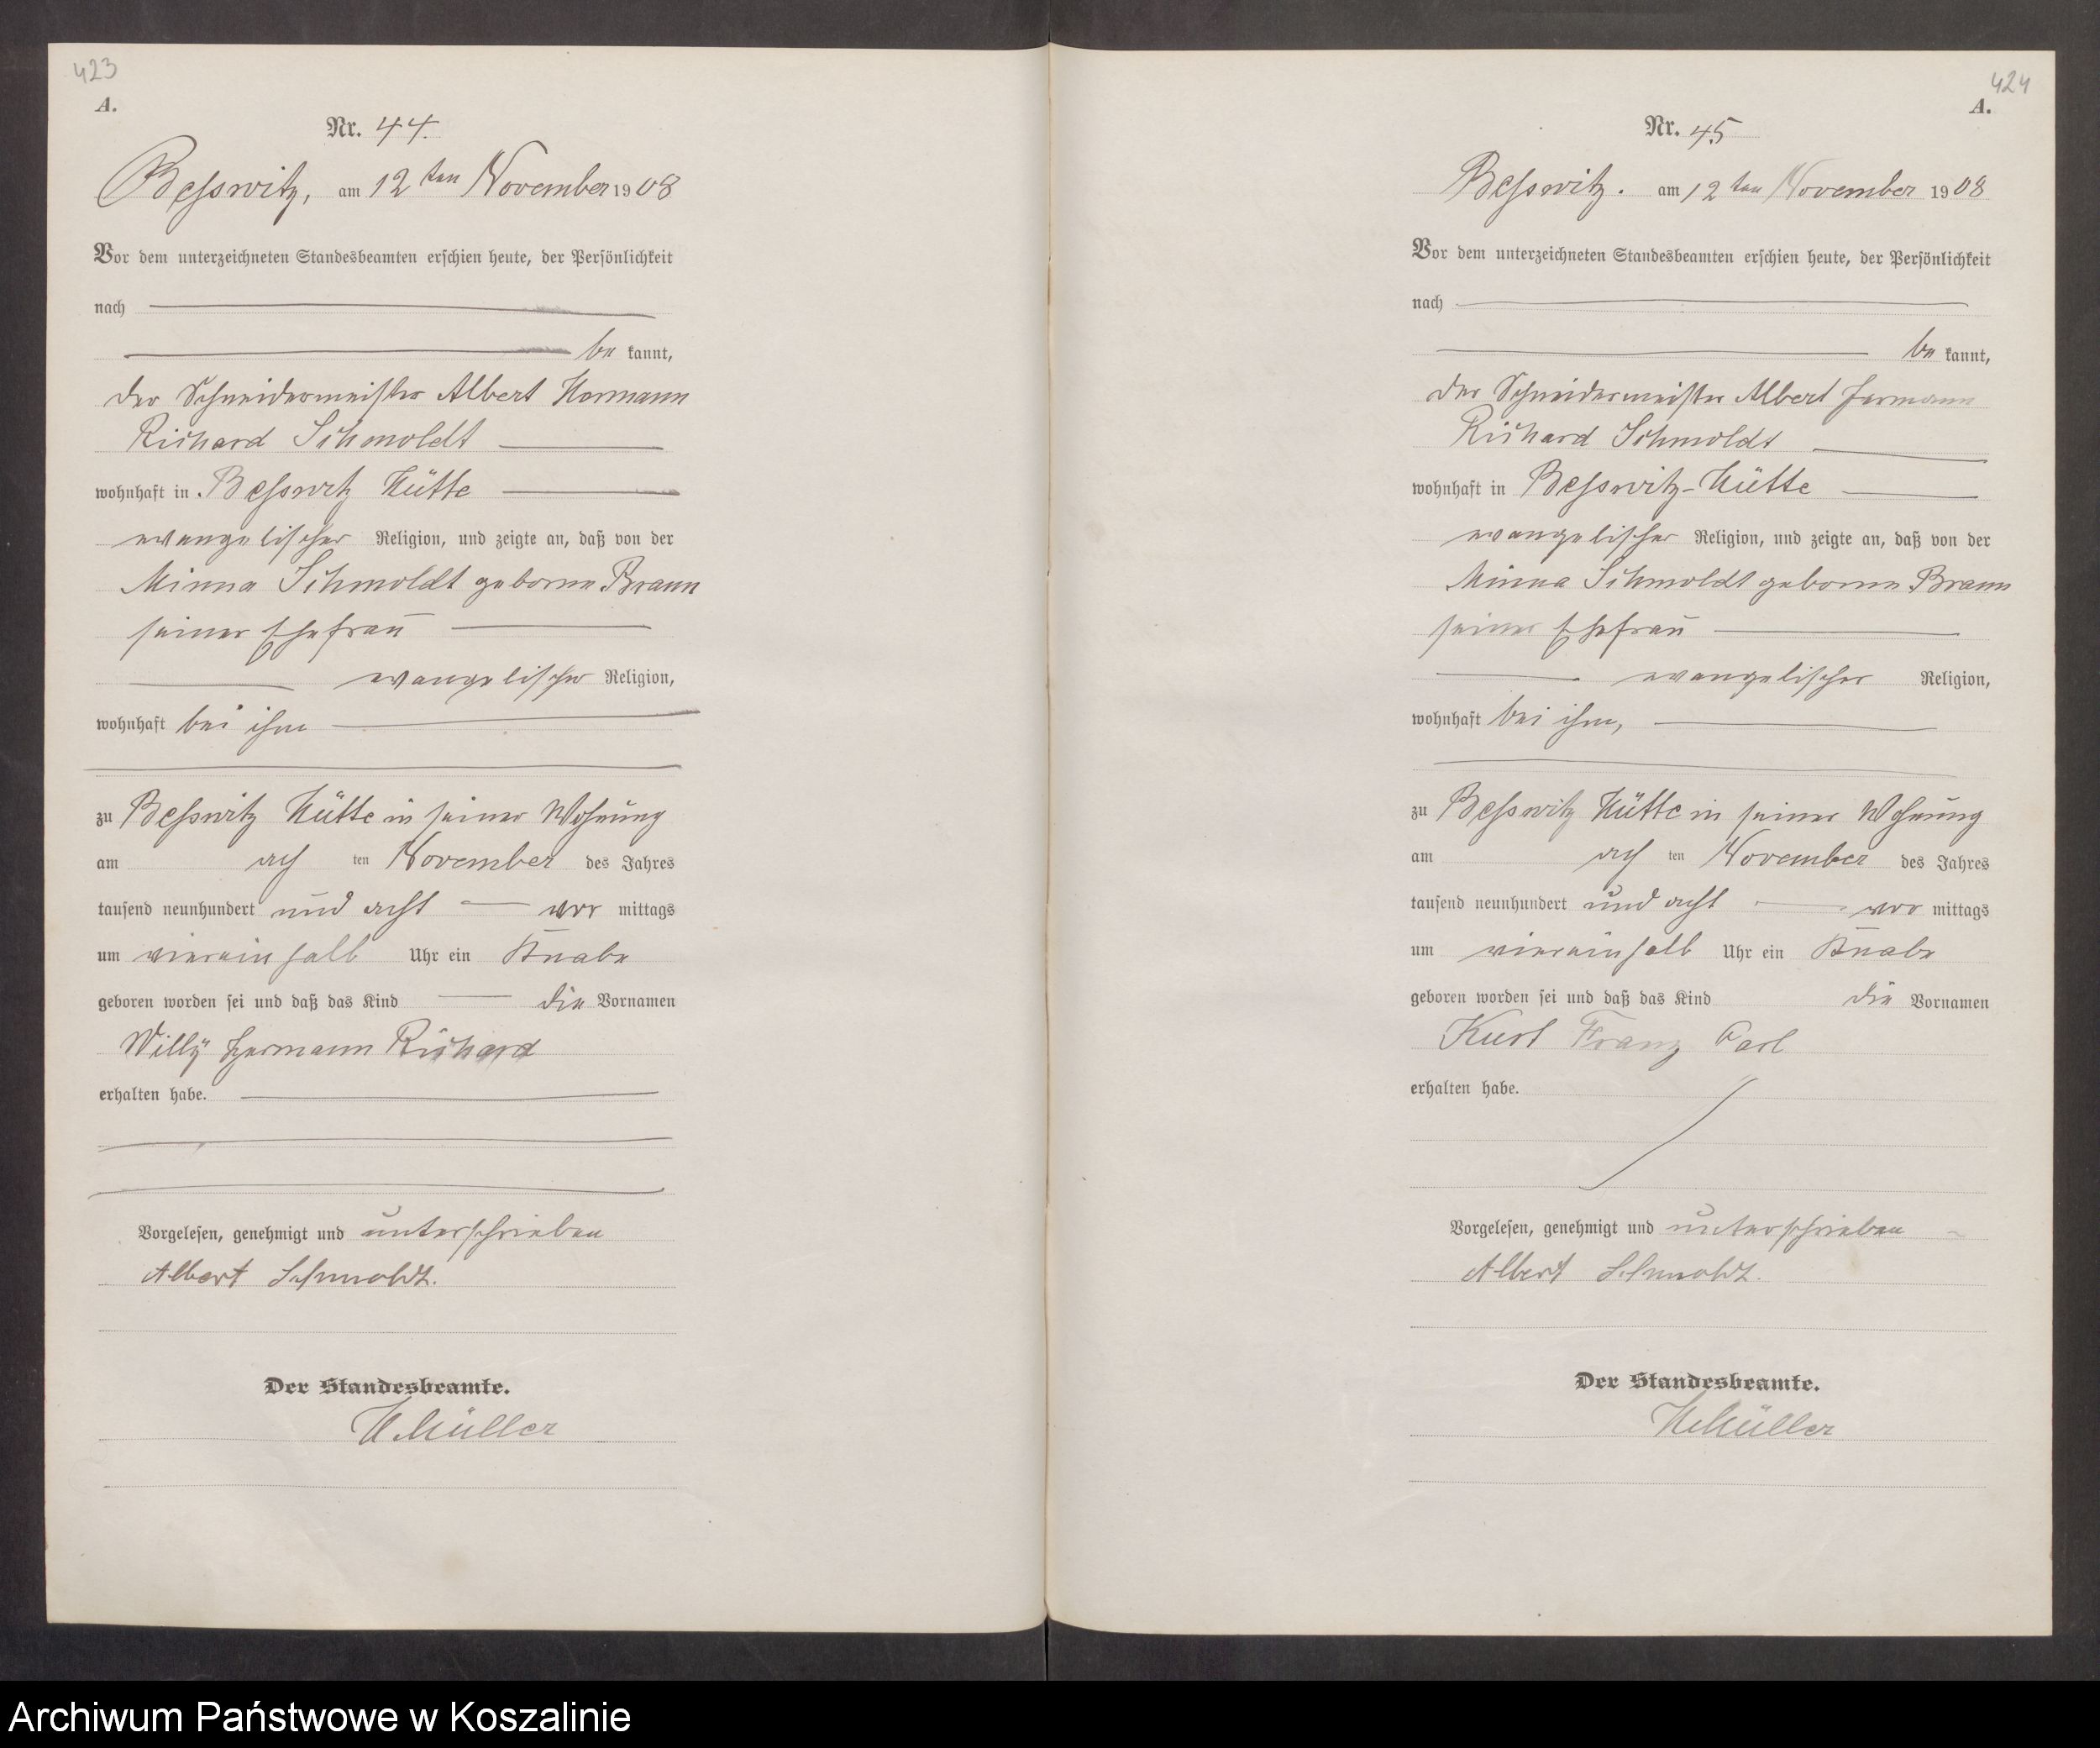 423
A.
Nr. 44.
Besswitz, am 12ten November 1908
Vor dem unterzeichneten Standesbeamten erschien heute, der Persönlichkeit
nach
be kannt,
der Schneidermeister Albert Hermann
Richard Schmoldt
wohnhaft in Besswitz Hütte
evangelischer Religion, und zeigte an, daß von der
Minna Schmoldt geborne Braun
seiner Ehefrau
evangelischer Religion,
wohnhaft bei ihm
zu Besswitz Hütte in seiner Wohnung
am ach ten November des Jahres
tausend neunhundert und acht vor mittags
um viereinhalb Uhr ein Knabe
geboren worden sei und daß das Kind die Vornamen
Willy Hermann Richard
erhalten habe.
Vorgelesen, genehmigt und unterschrieben
Albert Schmoldt.
Der Standesbeamte.
H. Müller
424
A.
Nr. 45
Besswitz. am 12ten November 1908
Vor dem unterzeichneten Standesbeamten erschien heute, der Persönlichkeit
nach
be kannt,
der Schneidermeister Albert Hermann
Richard Schmoldt
wohnhaft in Besswitz-Hütte
evangelischer Religion, und zeigte an, daß von der
Minna Schmoldt geborne Braun
seiner Ehefrau
evangelischer Religion,
wohnhaft bei ihm,
zu Besswitz Hütte in seiner Wohnung
am ach ten November des Jahres
tausend neunhundert und acht vor mittags
um viereinhalb Uhr ein Knabe
geboren worden sei und daß das Kind die Vornamen
Kurt Franz Carl
erhalten habe.
Vorgelesen, genehmigt und unterschrieben
Albert Schmoldt.
Der Standesbeamte.
H. Müller
Archiwum Państwowe w Koszalinie